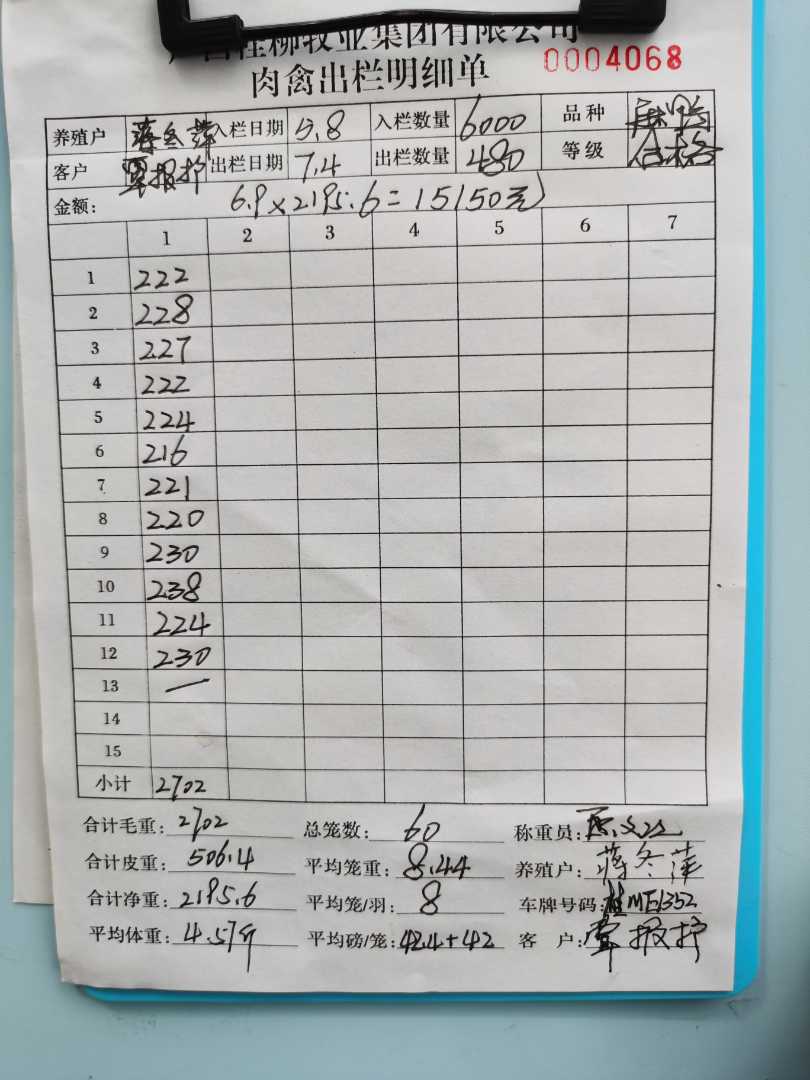 广西桂柳牧业集团有限公司
肉禽出栏明细单 0004068
养殖户 蒋冬萍 入栏日期 5.8 入栏数量 6000 品种
客户 覃报护 出栏日期 7.4 出栏数量 480 等级 合格
金额: 6.9×2195.6=15150元
1 2 3 4 5 6 7
1 222
2 228
3 227
4 222
5 224
6 216
7 221
8 220
9 230
10 238
11 224
12 230
13 一
14
15
小计 2702
合计毛重: 2702 总笼数: 60 称重员:
合计皮重: 506.4 平均笼重: 8.44 养殖户: 蒋冬萍
合计净重: 2195.6 平均笼/羽: 8 车牌号码: 桂ME1352
平均体重: 4.57斤 平均磅/笼: 424+42 客户: 覃报护